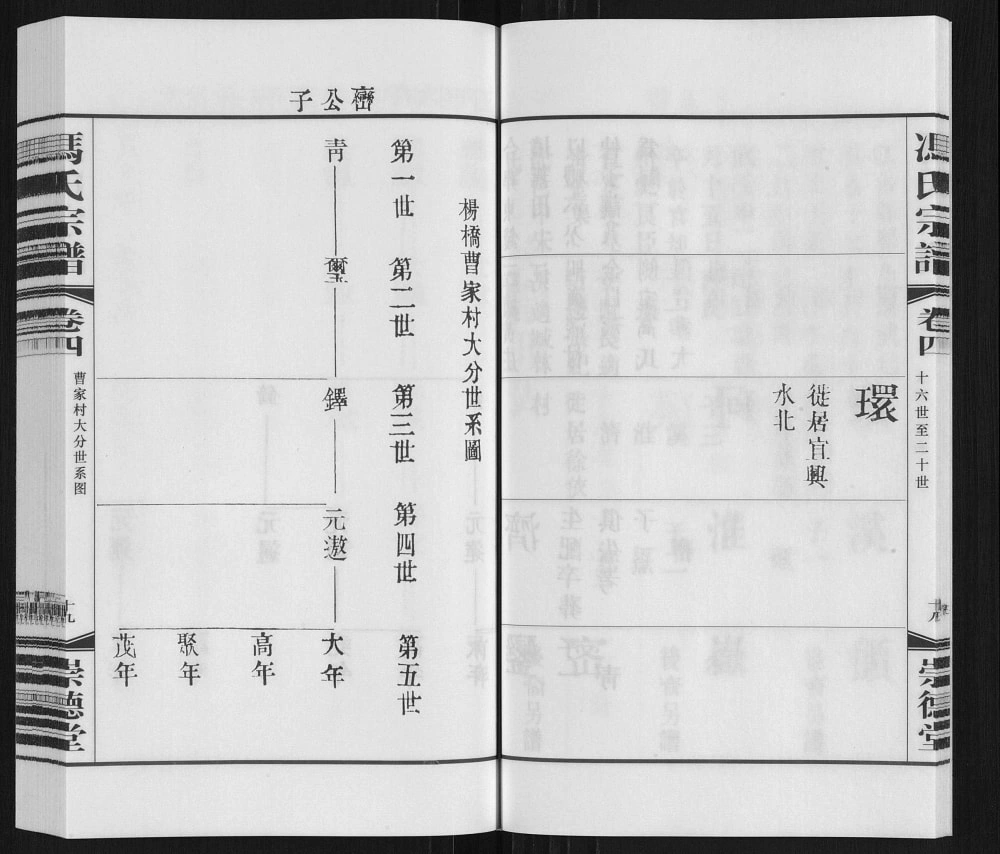 馮氏宗譜
卷四
十六世至二十世
崇德堂
環
徙居宜興
水北
巒公子
楊橋曹家村大分世系圖
第一世
第二世
第三世
第四世
第五世
青
璽
鐸
元遨
大年
高年
聚年
茂年
馮氏宗譜
卷四
曹家村大分世系图
十九
崇德堂